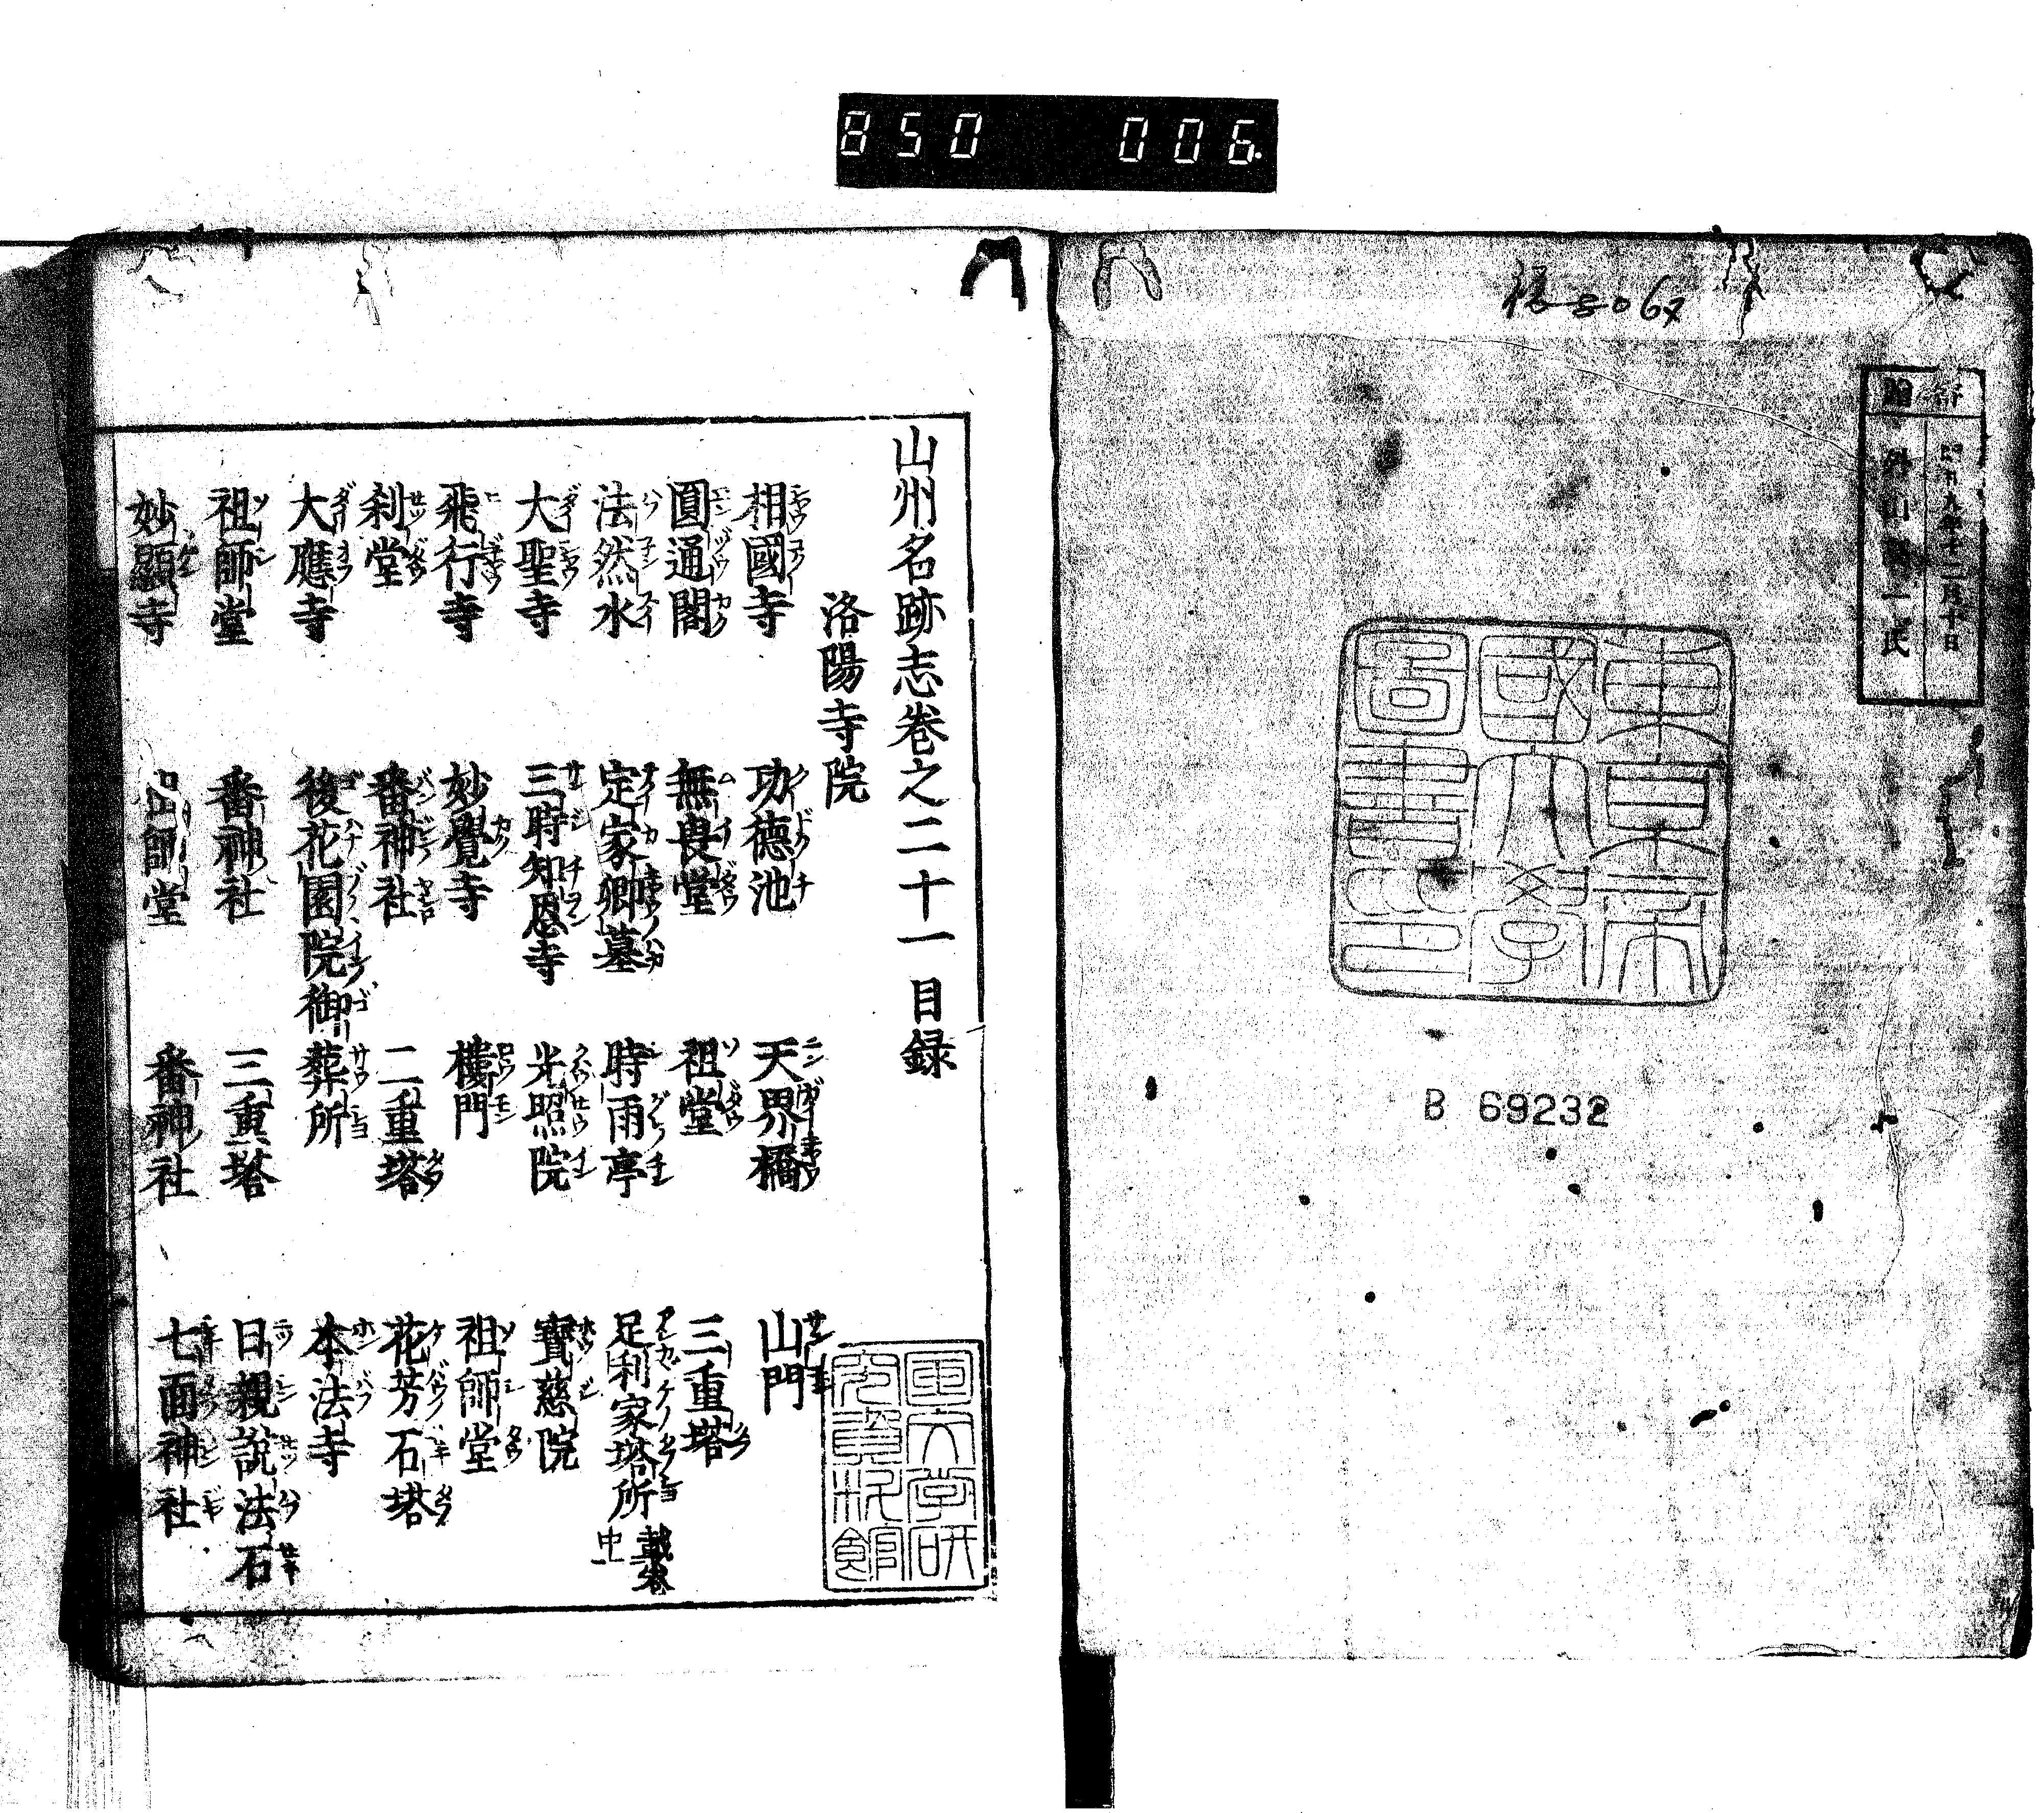 850 006
寄贈
昭和九年十二月十日
一氏
東京帝
國大學
圖書印
B 69232
山州名跡志卷之二十一目録
洛陽寺院
相國寺 功德池 天界橋 山門
圓通閣 無畏堂 祖堂 三重塔
法然水 定家卿墓 時雨亭 足利家塔所
大聖寺 三時知恩寺 光照院 寶慈院
飛行寺 妙覺寺 樓門 祖師堂
刹堂 番神社 二重塔 花芳石塔
大應寺 後花園院御葬所 本法寺
祖師堂 番神社 三重塔 日親説法石
妙顯寺 祖師堂 番神社 七面神社
国文学研
究資料館